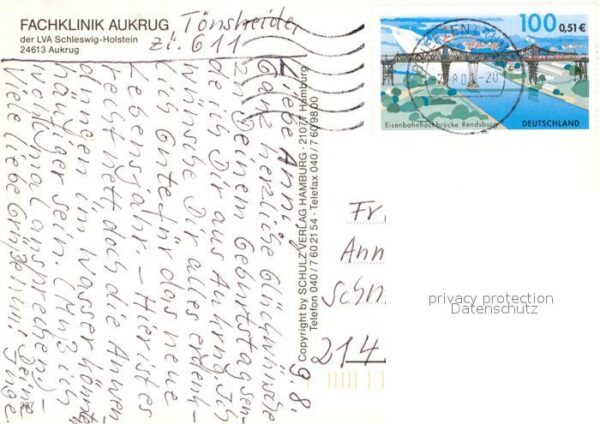 FACHKLINIK AUKRUG
der LVA Schleswig-Holstein
24613 Aukrug
Tönsheider
Zi. 611
9.8.
Liebe Anni,
Ganz herzliche Glückwünsche
zu Deinem Geburtstag sen-
de ich Dir aus Aukrug. Ich
wünsche Dir alles erdenk-
lich Gute für das neue
Lebensjahr. – Hier ist es
recht nett, doch die Anwen-
dungen im Wasser könnten
häufiger sein. (Muß ich
wohl mal ansprechen) –
Viele liebe Grüße
Deine
Inge.
Copyright by SCHULZ VERLAG HAMBURG · 21077 Hamburg
Telefon 040/7 60 21 54 · Telefax 040/7 60 98 00
100 0,51 €
Eisenbahnhochbrücke Rendsburg
DEUTSCHLAND
Fr
Ann
Schm
214
privacy protection
Datenschutz